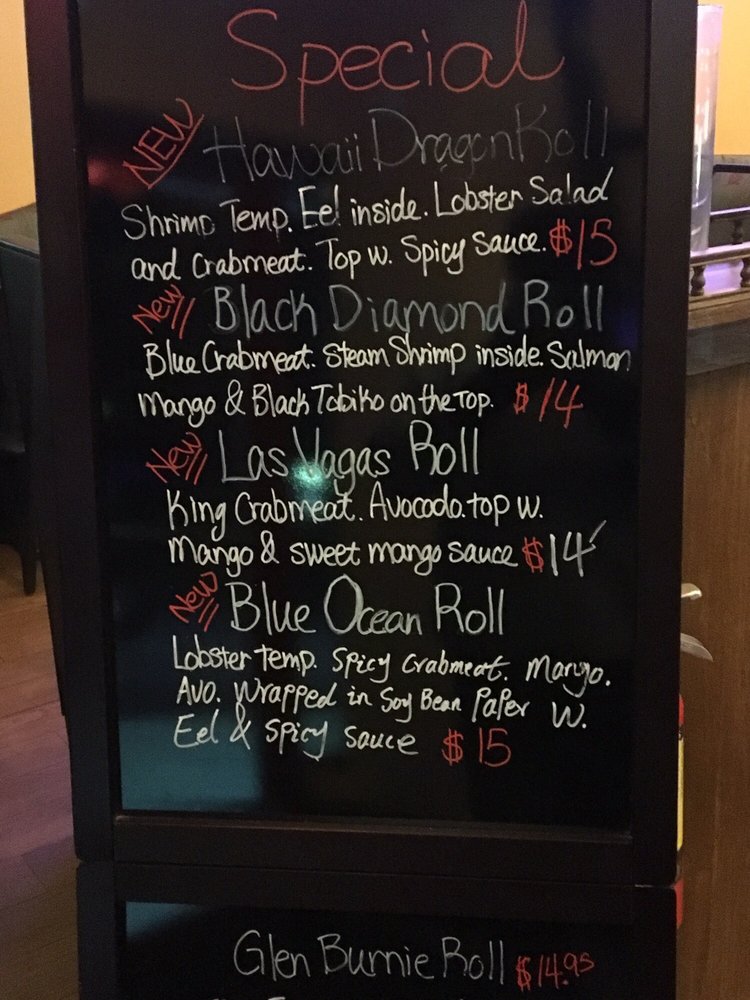 Special
NEW Hawaii Dragon Roll
Shrimp Temp. Eel inside. Lobster Salad
and Crabmeat. Top w. Spicy Sauce. $15
New Black Diamond Roll
Blue Crabmeat. Steam Shrimp inside. Salmon
Mango & Black Tobiko on the Top. $14
New Las Vagas Roll
King Crabmeat. Avocado. top w.
Mango & sweet mango sauce $14
New Blue Ocean Roll
Lobster Temp. Spicy Crabmeat. Mango.
Avo. Wrapped in Soy Bean Paper W.
Eel & Spicy Sauce $15
Glen Burnie Roll $14.95